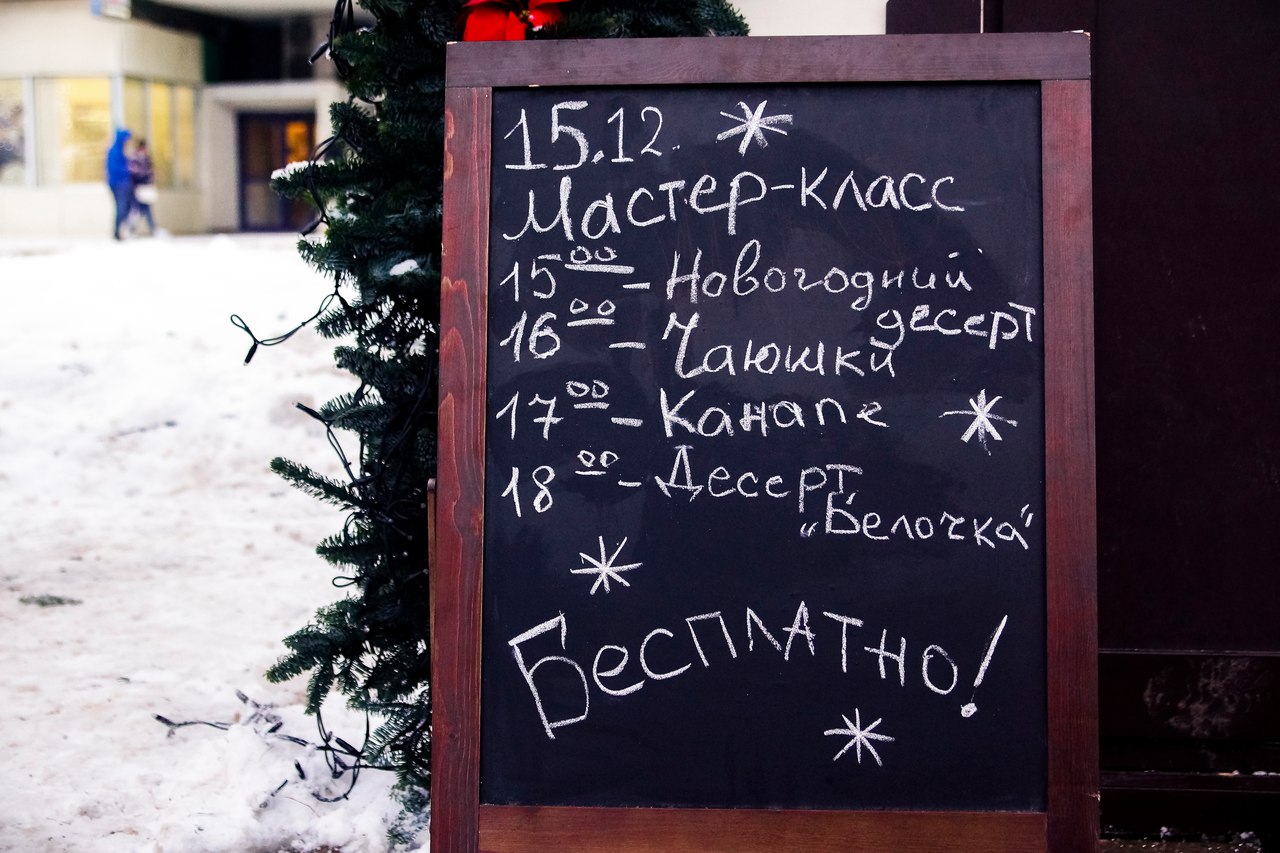 15.12.
Мастер-класс
15⁰⁰ – Новогодний
десерт
16⁰⁰ – Чаюшки
17⁰⁰ – Канапе
18⁰⁰ – Десерт
„Белочка“
Бесплатно!